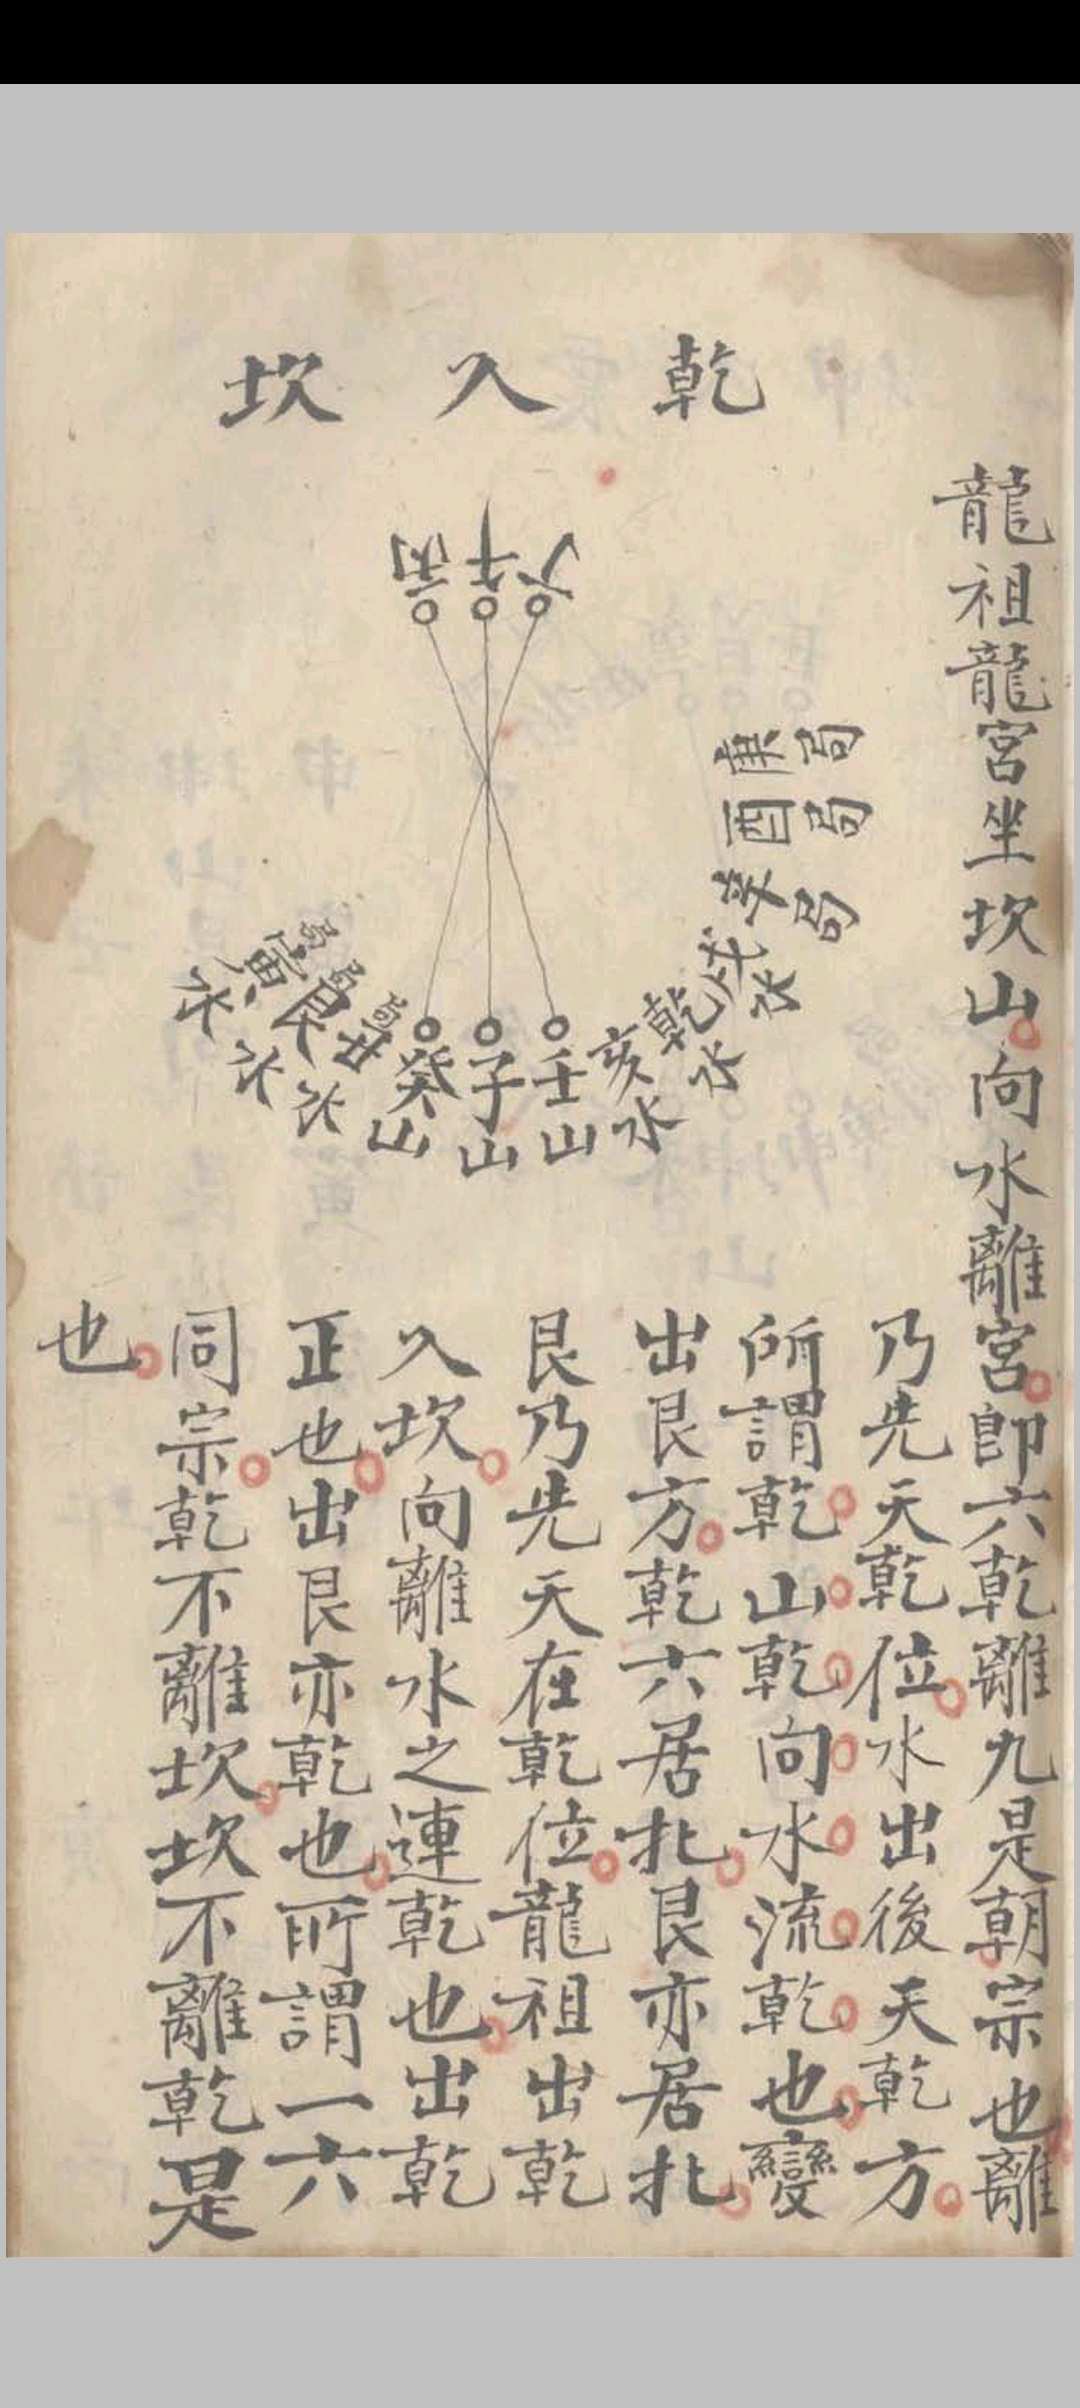 乾入坎
龍祖龍宮坐坎山向水離宮即六乾離九是朝宗也離
乃先天乾位水出後天乾方
所謂乾山乾向水流乾也變
出艮方乾六居北艮亦居北
艮乃先天在乾位龍祖出乾
入坎向離水之連乾也出乾
正也出艮亦乾也所謂一六
同宗乾不離坎坎不離乾是
也
丙
午
丁
庚局
酉局
辛局
戌水
乾水
亥水
壬山
子山
癸山
丑局水
艮局水
寅局水